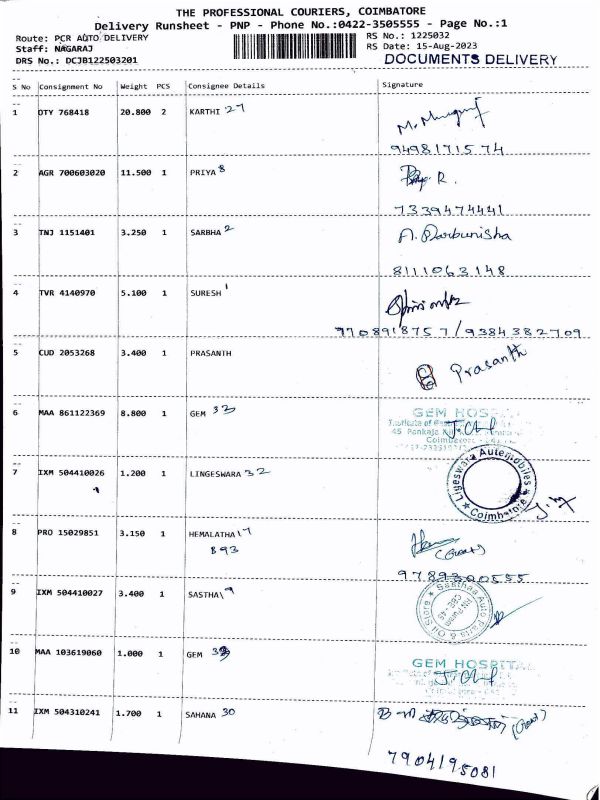 THE PROFESSIONAL COURIERS, COIMBATORE
Delivery Runsheet - PNP - Phone No.:0422-3505555 - Page No.:1
Route: PCR AUTO DELIVERY
RS No.: 1225032
Staff: NAGARAJ
RS Date: 15-Aug-2023
DRS No.: DCJB122503201
DOCUMENTS DELIVERY
S No Consignment No Weight PCS Consignee Details Signature
1 OTY 768418 20.800 2 KARTHI 27
9498171574
2 AGR 700603020 11.500 1 PRIYA 8 R.
7339474441
3 TNJ 1151401 3.250 1 SARBHA 2 A. Parbunisha
8111063148
4 TVR 4140970 5.100 1 SURESH 1
9708918757/9384382709
5 CUD 2053268 3.400 1 PRASANTH Prasanth
6 MAA 861122369 8.800 1 GEM 33
GEM HOSPI
Coimbatore
7 IXM 504410026 1.200 1 LINGESWARA 32
Automobiles
Coimbatore
8 PRO 15029851 3.150 1 HEMALATHA 17
893
9789300555
9 IXM 504410027 3.400 1 SASTHA 9
Sasthaa Auto Parts & Oil Store
CBE - 45
10 MAA 103619060 1.000 1 GEM
GEM HOSPITAL
11 IXM 504310241 1.700 1 SAHANA 30
7904195081